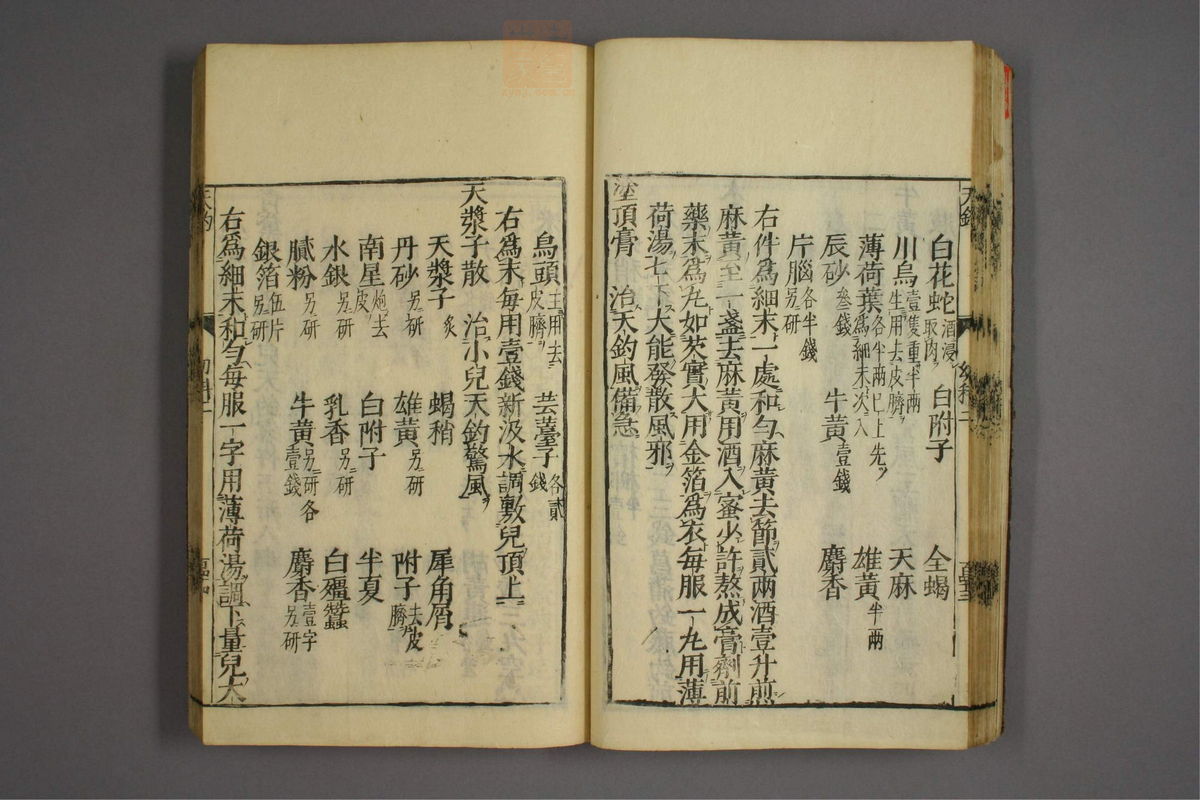 天釣
白花蛇 酒浸取肉 白附子 全蝎
川烏 壹隻重半兩生用去皮臍 天麻
薄荷葉 各半兩已上先爲細末次入 雄黃 半兩
辰砂 叄錢 牛黃 壹錢 麝香
片腦 各半錢另研
右件爲細末一處和勻麻黃去節貳兩酒壹升煎
麻黃至一盞去麻黃用酒入蜜少許熬成膏劑前
藥末爲丸如芡實大用金箔爲衣每服一丸用薄
荷湯七下大能發散風邪
塗頂膏 治天釣風備急
烏頭 生用去皮臍 芸薹子 各貳錢
右爲末每用壹錢新汲水調敷兒頂上
天漿子散 治小兒天釣驚風
天漿子 炙 蝎稍 犀角屑
丹砂 另研 雄黃 另研 附子 去皮臍
南星 炮去皮 白附子 半夏
水銀 另研 乳香 另研 白殭蠶
膩粉 另研 牛黃 另研各壹錢 麝香 壹字另研
銀箔 伍片另研
右爲細末和勻每服一字用薄荷湯調下量兒大